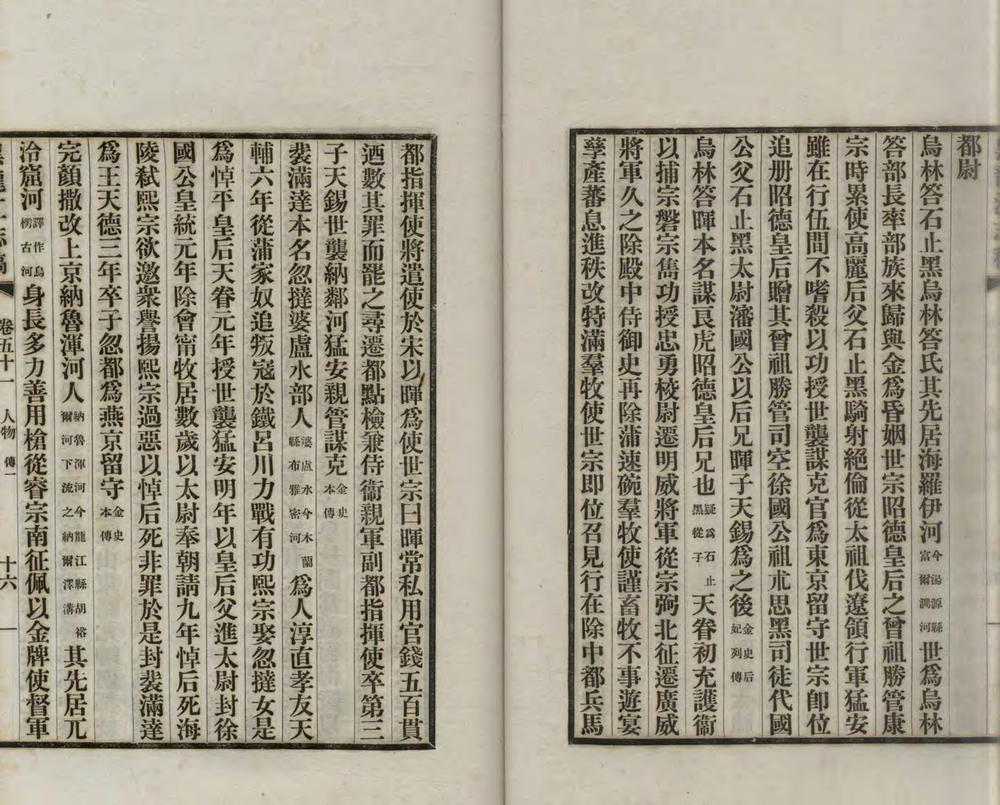 都尉
烏林答石止黑烏林答氏其先居海羅伊河今湯源縣富爾澗河世爲烏林
答部長率部族來歸與金爲昏姻世宗昭德皇后之曾祖勝管康
宗時累使高麗后父石止黑騎射絕倫從太祖伐遼領行軍猛安
雖在行伍間不嗜殺以功授世襲謀克官爲東京留守世宗卽位
追册昭德皇后贈其曾祖勝管司空徐國公祖朮思黑司徒代國
公父石止黑太尉瀋國公以后兄暉子天錫爲之後金史后妃列傳
烏林答暉本名謀良虎昭德皇后兄也疑爲石止黑從子天眷初充護衞
以捕宗磐宗雋功授忠勇校尉遷明威將軍從宗弼北征遷廣威
將軍久之除殿中侍御史再除蒲速碗羣牧使謹畜牧不事遊宴
孳產蕃息進秩改特滿羣牧使世宗即位召見行在除中都兵馬
都指揮使將遣使於宋以暉爲使世宗曰暉常私用官錢五百貫
迺數其罪而罷之尋遷都點檢兼侍衞親軍副都指揮使卒第三
子天錫世襲納鄰河猛安親管謀克金史本傳
裴滿達本名忽撻婆盧水部人婆盧水今木蘭縣布雅密河爲人淳直孝友天
輔六年從蒲家奴追叛寇於鐵呂川力戰有功熙宗娶忽撻女是
爲悼平皇后天眷元年授世襲猛安明年以皇后父進太尉封徐
國公皇統元年除會甯牧居數歲以太尉奉朝請九年悼后死海
陵弒熙宗欲邀衆譽揚熙宗過惡以悼后死非罪於是封裴滿達
爲王天德三年卒子忽都爲燕京留守金史本傳
完顏撒改上京納魯渾河人納魯渾河今龍江縣胡裕爾河下流之納爾澤溝其先居兀
冾窟河譯作烏楞古河身長多力善用槍從睿宗南征佩以金牌使督軍
卷五十一 人物 傳一 十六